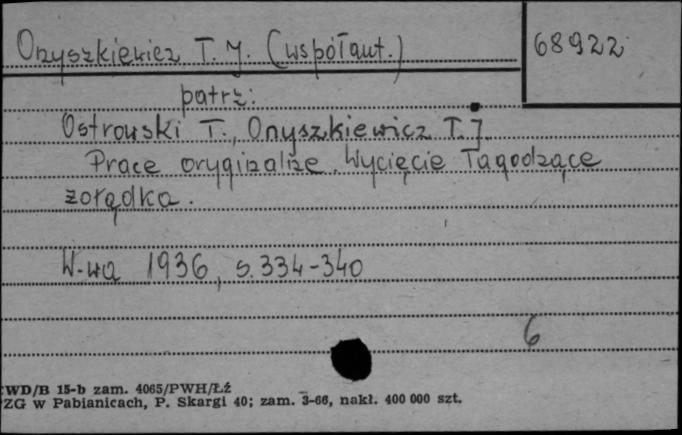 Onyszkiewicz T. J. (współaut.)
68922
patrz:
Ostrowski T., Onyszkiewicz T. J.
Prace oryginalne. Wycięcie łagodzące
żołądka.
W-wa 1936, s. 334-340
6
WD/B 15-b zam. 4065/PWH/Łź
ZG w Pabianicach, P. Skargi 40; zam. 3-66, nakł. 400 000 szt.